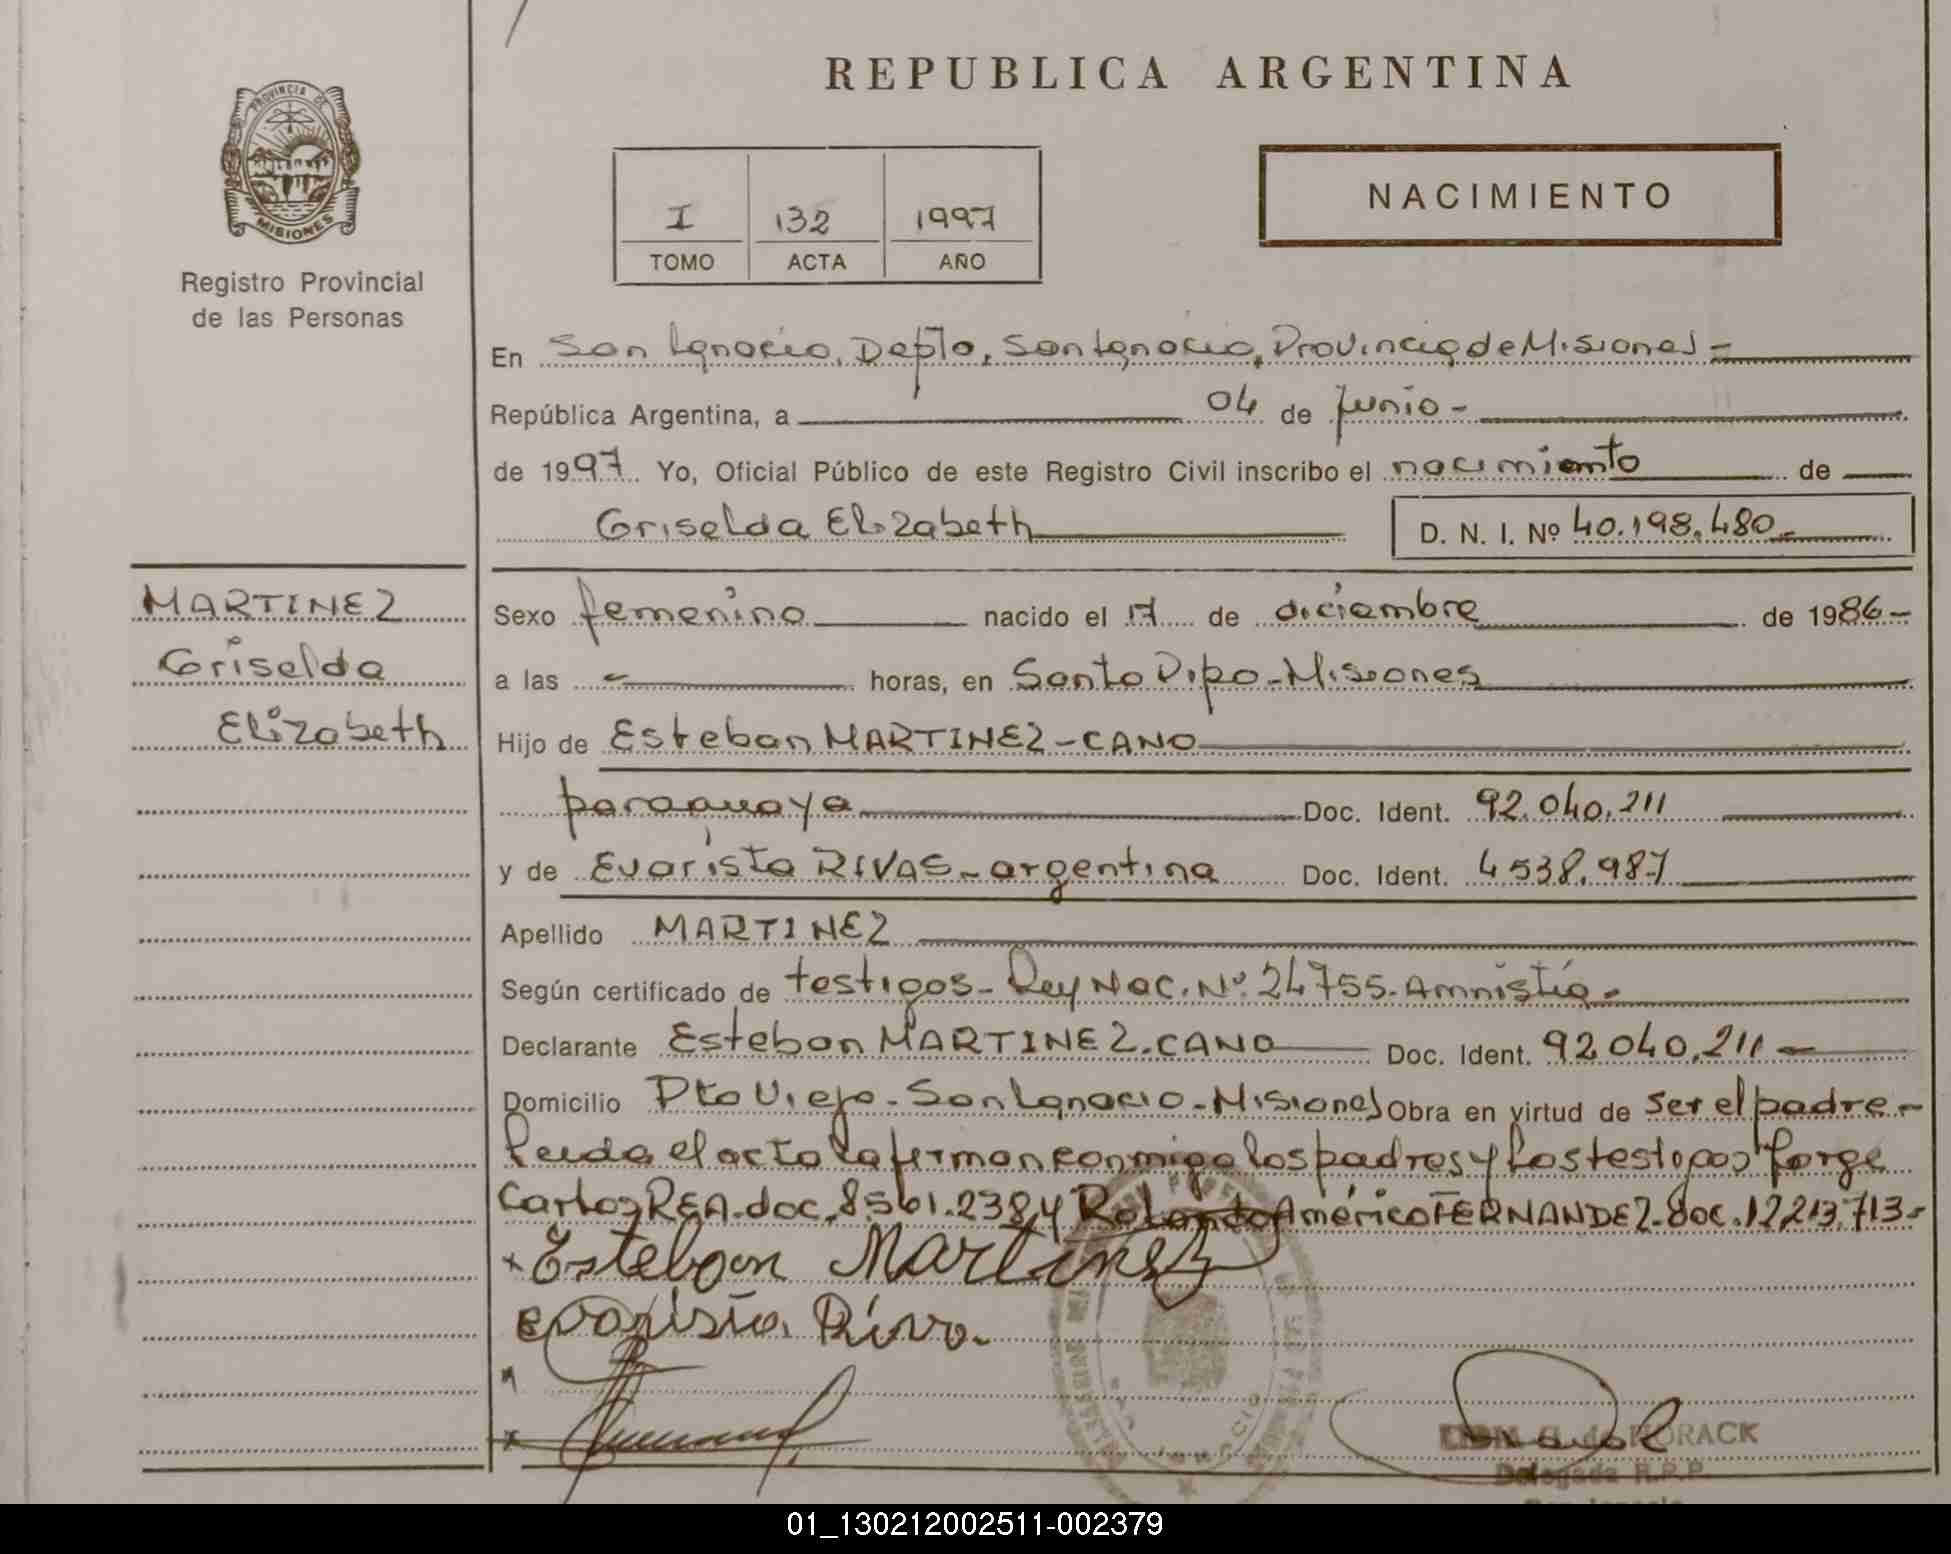 REPUBLICA ARGENTINA
PROVINCIA DE
MISIONES
Registro Provincial
de las Personas
I 132 1997
TOMO ACTA AÑO
NACIMIENTO
En San Ignacio, Depto, San Ignacio, Provincia de Misiones -
República Argentina, a 04 de junio -
de 1997 Yo, Oficial Público de este Registro Civil inscribo el nacimiento de
Griselda Elizabeth D. N. I. Nº 40.198.480 -
MARTINEZ
Griselda
Elizabeth
Sexo femenino nacido el 17 de diciembre de 1986 -
a las horas, en Santo Pipo - Misiones
Hijo de Esteban MARTINEZ - CANO
paraguaya Doc. Ident. 92.040.211
y de Evarista RIVAS - argentina Doc. Ident. 4.538.987
Apellido MARTINEZ
Según certificado de testigos - Ley Nac. Nº 24755 - Amnistía -
Declarante Esteban MARTINEZ - CANO Doc. Ident. 92.040.211 -
Domicilio Pto Viejo - San Ignacio - Misiones Obra en virtud de ser el padre -
Leida el acta la firman conmigo los padres y los testigos Jorge
Carlos REA. doc. 8.561.238 y Rolando Américo FERNANDEZ. doc. 12.213.713 -
x Esteban Martinez
evarista Riva
x
HORACK
Delegada R.P.P.
01_130212002511-002379